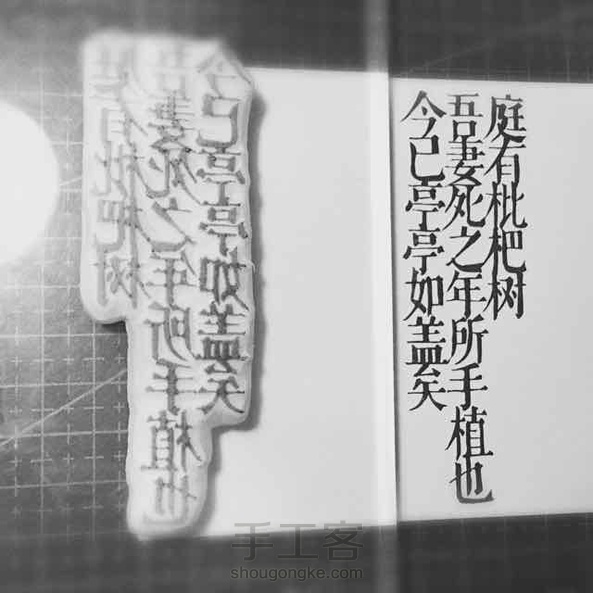 庭有枇杷树
吾妻死之年所手植也
今已亭亭如盖矣
庭有枇杷树
吾妻死之年所手植也
今已亭亭如盖矣
手工客
shougongke.com